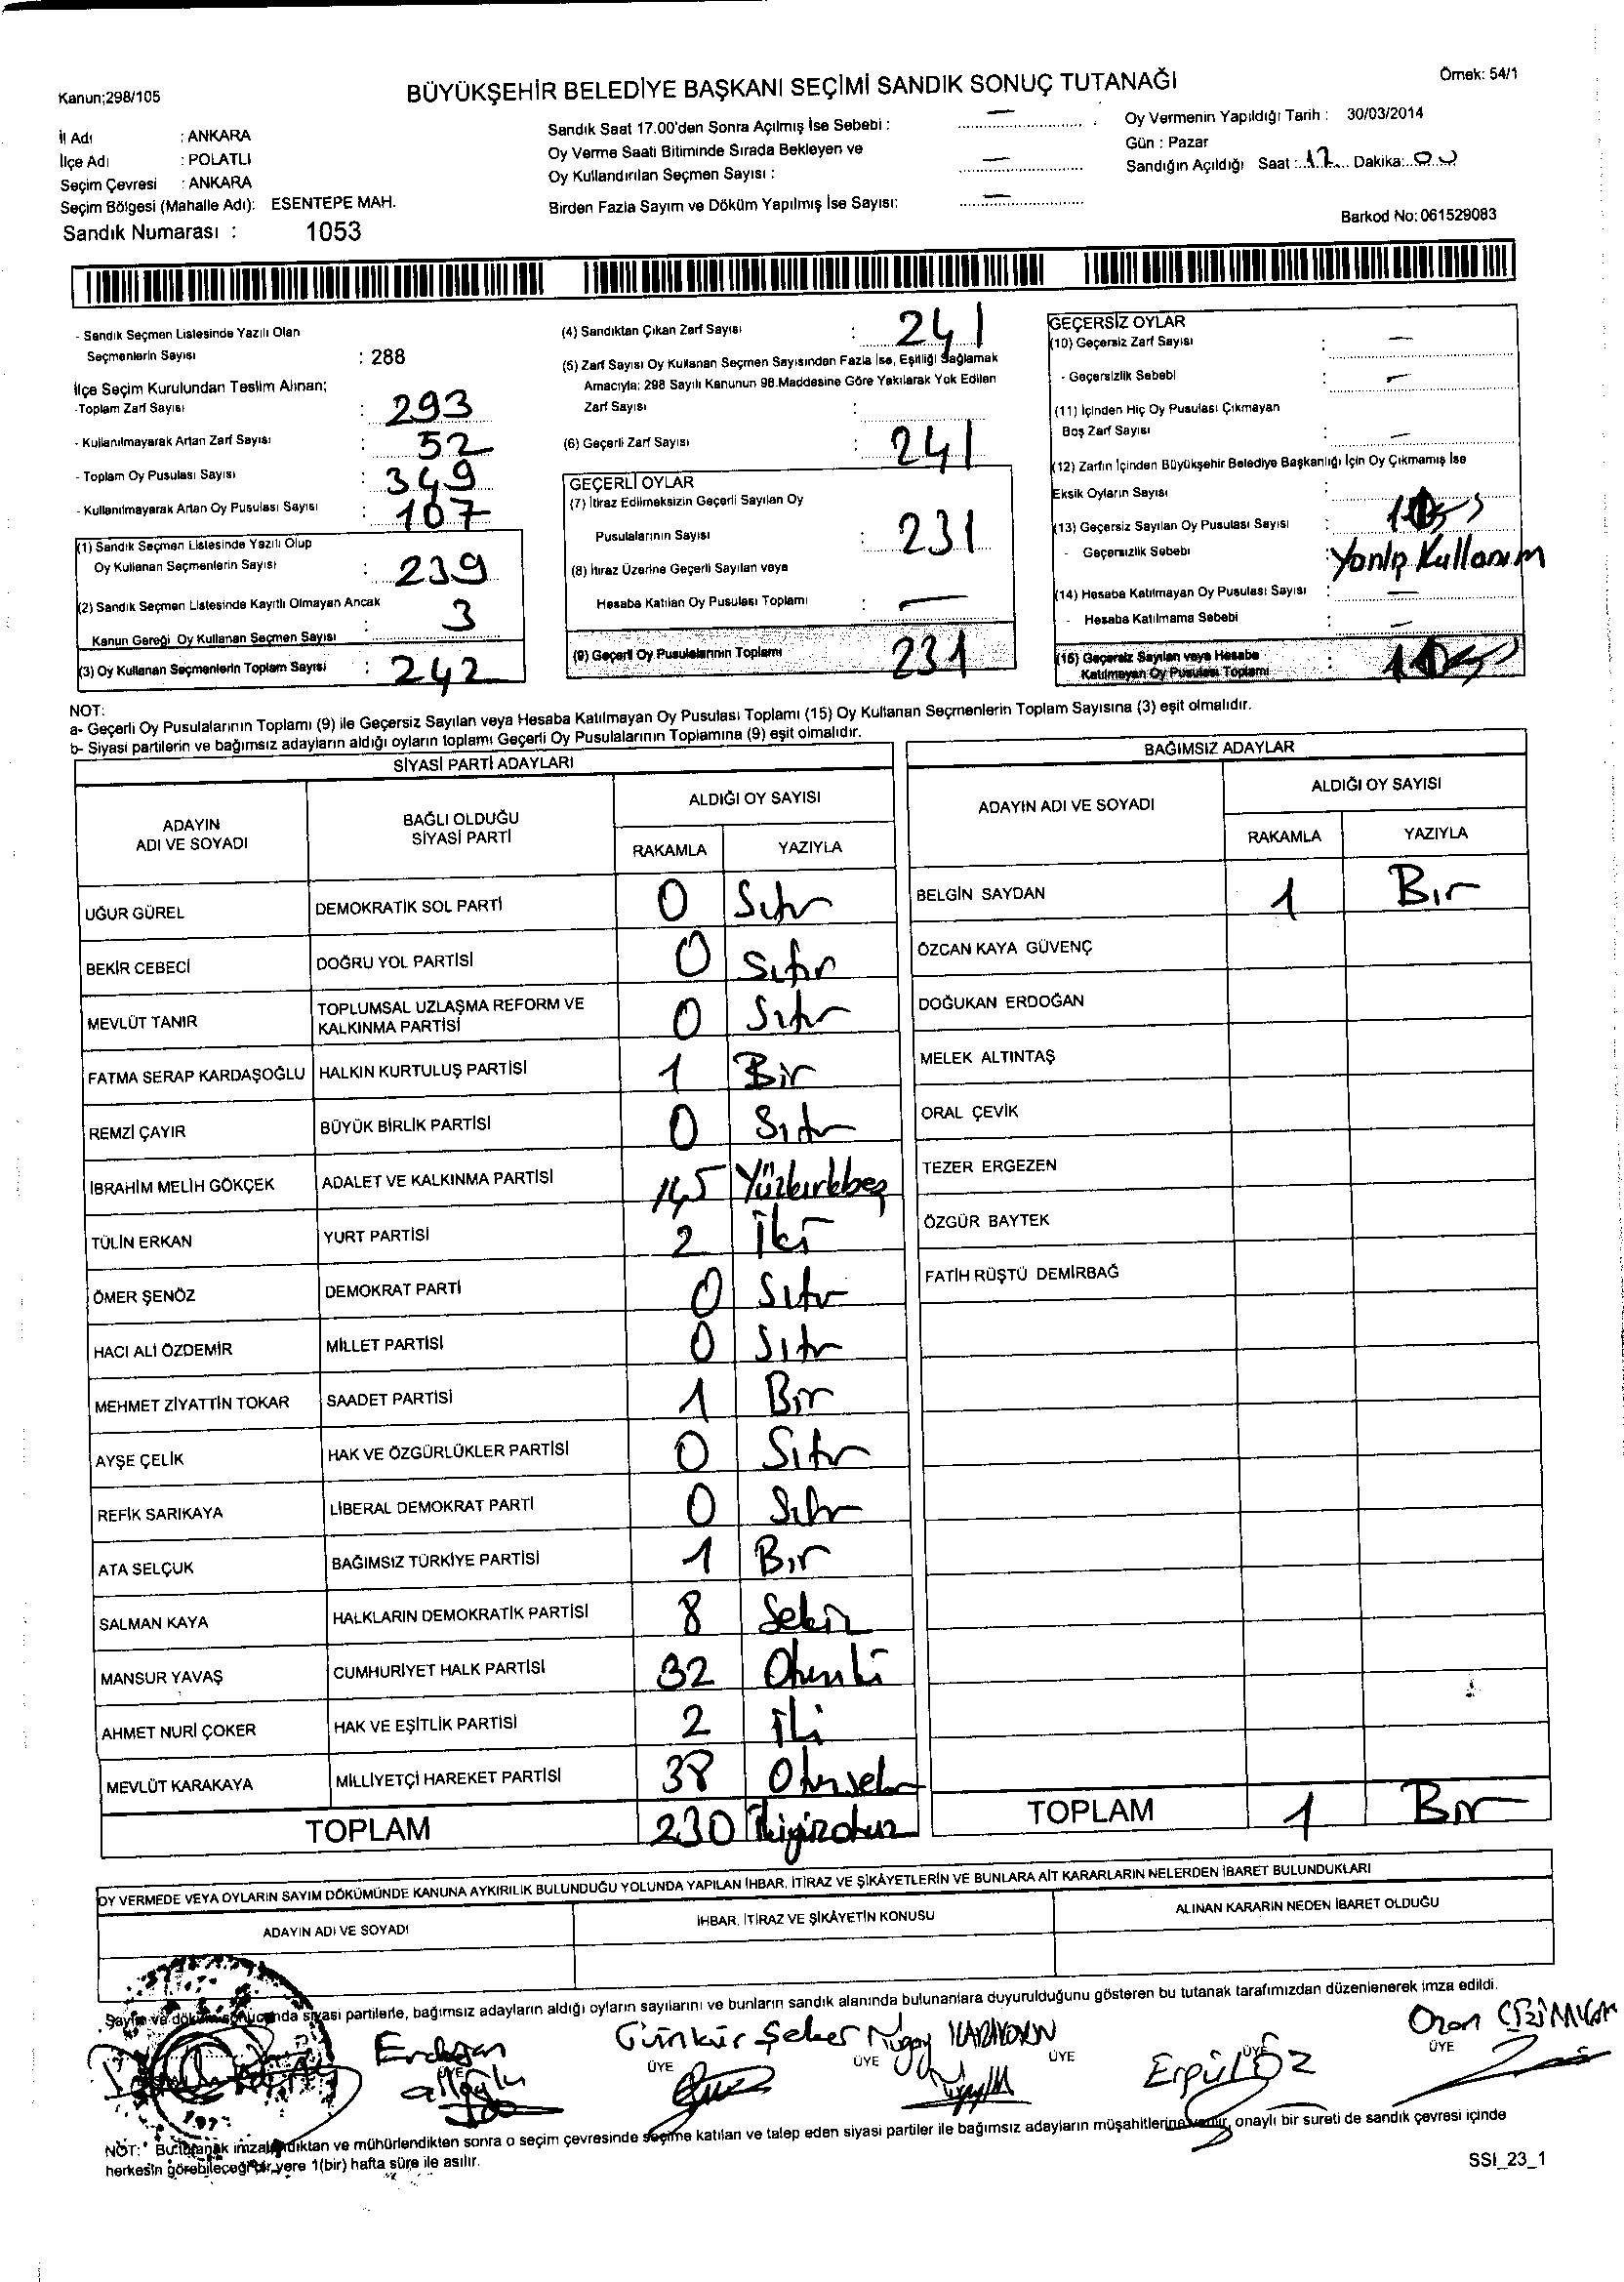 Kanun;298/105
BÜYÜKŞEHİR BELEDİYE BAŞKANI SEÇİMİ SANDIK SONUÇ TUTANAĞI
Örnek: 54/1
İl Adı : ANKARA
İlçe Adı : POLATLI
Seçim Çevresi : ANKARA
Seçim Bölgesi (Mahalle Adı): ESENTEPE MAH.
Sandık Numarası : 1053
Sandık Saat 17.00'den Sonra Açılmış İse Sebebi : —
Oy Verme Saati Bitiminde Sırada Bekleyen ve
Oy Kullandırılan Seçmen Sayısı : —
Birden Fazla Sayım ve Döküm Yapılmış İse Sayısı: —
Oy Vermenin Yapıldığı Tarih : 30/03/2014
Gün : Pazar
Sandığın Açıldığı Saat : 17 Dakika: 00
Barkod No: 061529083
- Sandık Seçmen Listesinde Yazılı Olan
Seçmenlerin Sayısı : 288
İlçe Seçim Kurulundan Teslim Alınan;
-Toplam Zarf Sayısı : 293
- Kullanılmayarak Artan Zarf Sayısı : 52
- Toplam Oy Pusulası Sayısı : 349
- Kullanılmayarak Artan Oy Pusulası Sayısı : 107
(1) Sandık Seçmen Listesinde Yazılı Olup
Oy Kullanan Seçmenlerin Sayısı : 239
(2) Sandık Seçmen Listesinde Kayıtlı Olmayan Ancak
Kanun Gereği Oy Kullanan Seçmen Sayısı : 3
(3) Oy Kullanan Seçmenlerin Toplam Sayısı : 242
(4) Sandıktan Çıkan Zarf Sayısı : 241
(5) Zarf Sayısı Oy Kullanan Seçmen Sayısından Fazla İse, Eşitliği Sağlamak
Amacıyla; 298 Sayılı Kanunun 98.Maddesine Göre Yakılarak Yok Edilen
Zarf Sayısı :
(6) Geçerli Zarf Sayısı : 241
GEÇERLİ OYLAR
(7) İtiraz Edilmeksizin Geçerli Sayılan Oy
Pusulalarının Sayısı : 231
(8) İtiraz Üzerine Geçerli Sayılan veya
Hesaba Katılan Oy Pusulası Toplamı : —
(9) Geçerli Oy Pusulalarının Toplamı 231
GEÇERSİZ OYLAR
(10) Geçersiz Zarf Sayısı : —
- Geçersizlik Sebebi : —
(11) İçinden Hiç Oy Pusulası Çıkmayan
Boş Zarf Sayısı : —
(12) Zarfın İçinden Büyükşehir Belediye Başkanlığı İçin Oy Çıkmamış İse
Eksik Oyların Sayısı :
(13) Geçersiz Sayılan Oy Pusulası Sayısı :
- Geçersizlik Sebebi : Yanlış Kullanım
(14) Hesaba Katılmayan Oy Pusulası Sayısı : —
- Hesaba Katılmama Sebebi : —
(15) Geçersiz Sayılan veya Hesaba
Katılmayan Oy Pusulası Toplamı :
NOT:
a- Geçerli Oy Pusulalarının Toplamı (9) ile Geçersiz Sayılan veya Hesaba Katılmayan Oy Pusulası Toplamı (15) Oy Kullanan Seçmenlerin Toplam Sayısına (3) eşit olmalıdır.
b- Siyasi partilerin ve bağımsız adayların aldığı oyların toplamı Geçerli Oy Pusulalarının Toplamına (9) eşit olmalıdır.
SİYASİ PARTİ ADAYLARI
ADAYIN ADI VE SOYADI BAĞLI OLDUĞU SİYASİ PARTİ ALDIĞI OY SAYISI
RAKAMLA YAZIYLA
UĞUR GÜREL DEMOKRATİK SOL PARTİ 0 Sıfır
BEKİR CEBECİ DOĞRU YOL PARTİSİ 0 Sıfır
MEVLÜT TANIR TOPLUMSAL UZLAŞMA REFORM VE KALKINMA PARTİSİ 0 Sıfır
FATMA SERAP KARDAŞOĞLU HALKIN KURTULUŞ PARTİSİ 1 Bir
REMZİ ÇAYIR BÜYÜK BİRLİK PARTİSİ 0 Sıfır
İBRAHİM MELİH GÖKÇEK ADALET VE KALKINMA PARTİSİ 145 Yüzkırkbeş
TÜLİN ERKAN YURT PARTİSİ 2 İki
ÖMER ŞENÖZ DEMOKRAT PARTİ 0 Sıfır
HACI ALİ ÖZDEMİR MİLLET PARTİSİ 0 Sıfır
MEHMET ZİYATTİN TOKAR SAADET PARTİSİ 1 Bir
AYŞE ÇELİK HAK VE ÖZGÜRLÜKLER PARTİSİ 0 Sıfır
REFİK SARIKAYA LİBERAL DEMOKRAT PARTİ 0 Sıfır
ATA SELÇUK BAĞIMSIZ TÜRKİYE PARTİSİ 1 Bir
SALMAN KAYA HALKLARIN DEMOKRATİK PARTİSİ 8 Sekiz
MANSUR YAVAŞ CUMHURİYET HALK PARTİSİ 32 Otuziki
AHMET NURİ ÇOKER HAK VE EŞİTLİK PARTİSİ 2 İki
MEVLÜT KARAKAYA MİLLİYETÇİ HAREKET PARTİSİ 38 Otuzsekiz
TOPLAM 230 İkiyüzotuz
BAĞIMSIZ ADAYLAR
ADAYIN ADI VE SOYADI ALDIĞI OY SAYISI
RAKAMLA YAZIYLA
BELGİN SAYDAN 1 Bir
ÖZCAN KAYA GÜVENÇ
DOĞUKAN ERDOĞAN
MELEK ALTINTAŞ
ORAL ÇEVİK
TEZER ERGEZEN
ÖZGÜR BAYTEK
FATİH RÜŞTÜ DEMİRBAĞ
TOPLAM 1 Bir
OY VERMEDE VEYA OYLARIN SAYIM DÖKÜMÜNDE KANUNA AYKIRILIK BULUNDUĞU YOLUNDA YAPILAN İHBAR, İTİRAZ VE ŞİKÂYETLERİN VE BUNLARA AİT KARARLARIN NELERDEN İBARET BULUNDUKLARI
ADAYIN ADI VE SOYADI İHBAR, İTİRAZ VE ŞİKÂYETİN KONUSU ALINAN KARARIN NEDEN İBARET OLDUĞU
Sayım ve döküm sonucunda siyasi partilerle, bağımsız adayların aldığı oyların sayılarını ve bunların sandık alanında bulunanlara duyurulduğunu gösteren bu tutanak tarafımızdan düzenlenerek imza edildi.
Erdoğan
Şeker
Ergül ÖZ
ÜYE ÜYE ÜYE ÜYE ÜYE ÜYE
NOT: Bu tutanak imzalandıktan ve mühürlendikten sonra o seçim çevresinde seçime katılan ve talep eden siyasi partiler ile bağımsız adayların müşahitlerine verilir, onaylı bir sureti de sandık çevresi içinde
herkesin görebileceği bir yere 1(bir) hafta süre ile asılır.
SSI_23_1